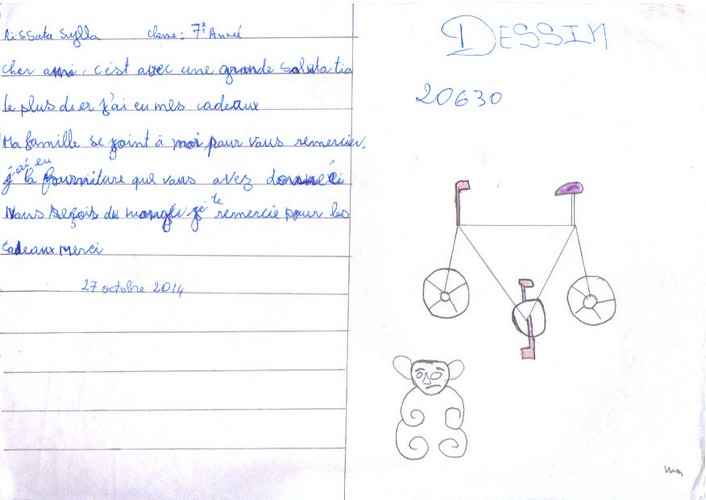 Aissata Sylla classe : 7è Année
cher ami, c'est avec une grande salutatio
le plus di er j'ai eu mes cadeaux
Ma famille se joint à moi pour vous remercier.
j'ai eu la fourniture que vous avez donnée
Nous de je te remercie pour les
cadeaux Merci
27 octobre 2014
DESSIN
20630